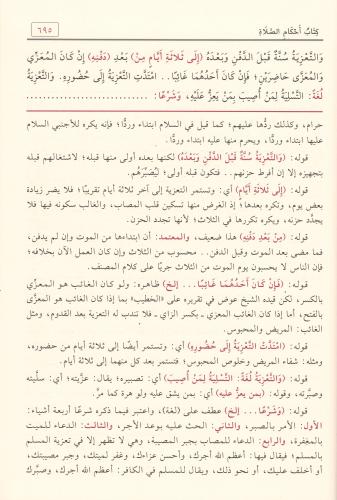 كِتَابُ أَحْكَامِ الصَّلَاةِ ٦٩٥
وَالتَّعْزِيَةُ سُنَّةٌ قَبْلَ الدَّفْنِ وَبَعْدَهُ (إِلَى ثَلَاثَةِ أَيَّامٍ مِنْ) بَعْدِ (دَفْنِهِ) إِنْ كَانَ الْمُعَزِّي
وَالْمُعَزَّى حَاضِرَيْنِ؛ فَإِنْ كَانَ أَحَدُهُمَا غَائِبًا.. امْتَدَّتِ التَّعْزِيَةُ إِلَى حُضُورِهِ. وَالتَّعْزِيَةُ
لُغَةً: التَّسْلِيَةُ لِمَنْ أُصِيبَ بِمَنْ يَعِزُّ عَلَيْهِ، وَشَرْعًا: ..............................
حرام، وكذلك ردُّها عليهم؛ كما قيل في السلام ابتداء وردًّا؛ فإنه يكره للأجنبي السلام
عليها ابتداءً وردًّا، ويحرم منها عليه ابتداء وردًّا.
قوله: (وَالتَّعْزِيَةُ سُنَّةٌ قَبْلَ الدَّفْنِ وَبَعْدَهُ) لكنها بعده أولى منها قبله؛ لاشتغالهم قبله
بتجهيزه إلا إن أفرط حزنهم.. فتكون قبله أولى؛ ليُصَبِّرَهُم.
قوله: (إِلَى ثَلَاثَةِ أَيَّامٍ) أي: وتستمر التعزية إلى آخر ثلاثة أيام تقريبًا؛ فلا يضر زيادة
بعض يوم، وتكره بعدها؛ إذ الغرض منها تسكين قلب المصاب، والغالب سكونه فيها فلا
يجدَّد حزنه، ويكره تكررها في الثلاث؛ لأنها تجدد الحزن.
قوله: (مِنْ بَعْدِ دَفْنِهِ) هذا ضعيف، والمعتمد: أن ابتداءها من الموت وإن لم يدفن،
فما مضى بعد الموت وقبل الدفن.. محسوب من الثلاث وإن كان العمل الآن بخلافه؛
فإن الناس لا يحسبون يوم الموت من الثلاث جريًا على كلام المصنف.
قوله: (فَإِنْ كَانَ أَحَدُهُمَا غَائِبًا... إلخ) ظاهره: ولو كان الغائب هو المعزّي
بالكسر، لكن قيده الشيخ عوض في تقريره على «الخطيب» بما إذا كان الغائب هو المعزَّى
بالفتح، أما إذا كان الغائب المعزي ـ بكسر الزاي ـ.. فلا تندب له التعزية بعد القدوم، ومثل
الغائب: المريض والمحبوس.
قوله: (امْتَدَّتْ التَّعْزِيَةُ إِلَى حُضُورِهِ) أي: وتستمر أيضًا إلى ثلاثة أيام من حضوره،
ومثله: شفاء المريض وخلوص المحبوس؛ فتستمر بعد كل منهما إلى ثلاثة أيام.
قوله: (وَالتَّعْزِيَةُ لُغَةً: التَّسْلِيَةُ لِمَنْ أُصِيبَ) أي: تصبيره؛ يقال: عزَّيته؛ أي: سلَّيته
وصبَّرته، وقوله: (بمن يعزُّ عليه) أي: بمن يشق عليه ولو هرة كما مرَّ.
قوله: (وَشَرْعًا... إلخ) عطف على (لغة)، واعتبر فيما ذكره شرعًا أربعة أشياء:
الأول: الأمر بالصبر، والثاني: الحث عليه بوعد الأجر، والثالث: الدعاء للميت
بالمغفرة، والرابع: الدعاء للمصاب بجبر المصيبة، وهي لا تظهر إلا في تعزية المسلم
بالمسلم؛ فيقال فيها: أعظم الله أجرك، وأحسن عزاءك، وغفر لميتك، وجبر مصيبتك،
أو أخلف عليك، أو نحو ذلك، ويقال للمسلم في الكافر: أعظم الله أجرك، وصبَّرك